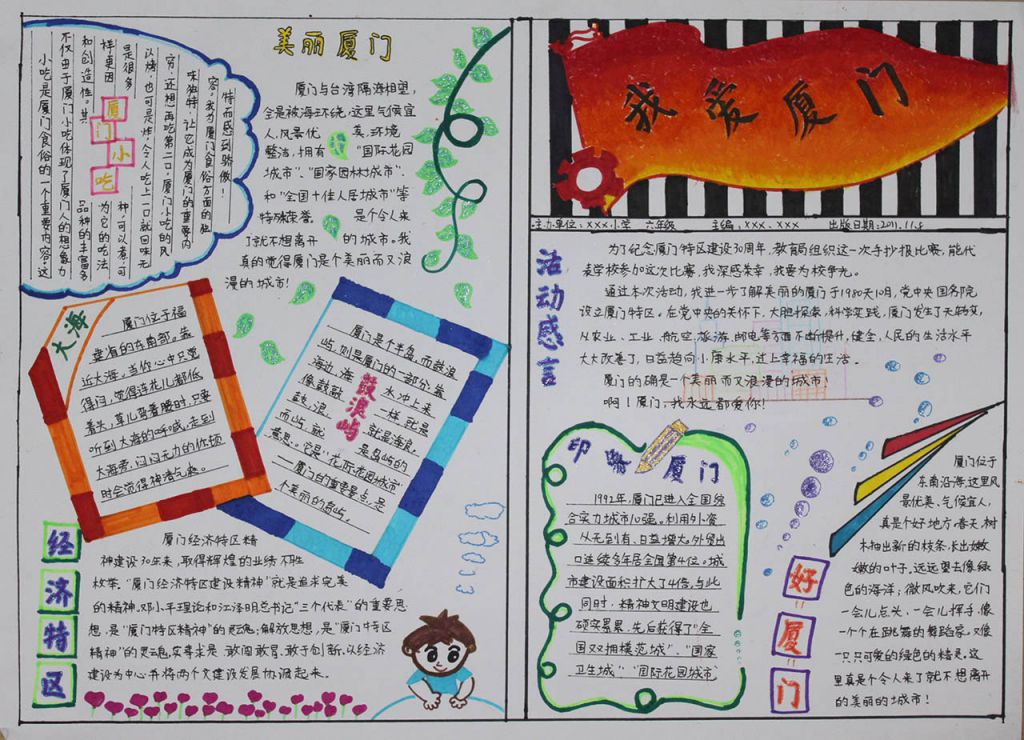 我爱厦门
主办单位：xxx小学 六年级 主编：xxx. xxx 出版日期：2011.11.5
美丽厦门
厦门与台湾隔海相望，
全是被海环绕，这里气候宜
人，风景优美，环境
整洁，拥有"国际花园
城市"、"国家园林城市"、
和"全国十佳人居城市"等
特殊荣誉。是个令人来
了就不想离开的城市。我
真的觉得厦门是个美丽而又浪
漫的城市！
厦门小吃
小吃是厦门食俗的一个重要内容。这
不仅由于厦门小吃体现了厦门人的想象力
和创造性。其品种的丰富多
样更因为它的吃法
是很多种，可以煮，可
以烤，也可是炸，令人吃上一口就回味无
穷，还想再吃第二口。厦门小吃的风
味独特，让它成为厦门的重要内
容。我为厦门食俗方面的独
特而感到骄傲！
大海
厦门位于福
建省的东南部。靠
近大海。当你心中只觉
得闷，觉得连花儿都低
着头，草儿弯着腰时，只要
听到大海的呼喊，走到
大海旁，闷闷无力的你顿
时会觉得神清气爽。
鼓浪屿
厦门是个半岛，而鼓浪
屿，则是厦门的一部分，靠
海边，海水冲上来
像鼓敲一样，就是
鼓，浪，就是海浪，
而屿，就是岛屿的
意思。它是"花园花园城市"
——厦门的重要景点，是
个美丽的岛屿。
经济特区
厦门经济特区精
神建设30年来，取得辉煌的业绩不胜
枚举。"厦门经济特区建设精神"就是追求完美
的精神。邓小平理论和江泽明总书记"三个代表"的重要思
想，是"厦门特区精神"的灵魂；解放思想，是"厦门特区
精神"的灵魂，实事求是，敢闯敢冒，敢于创新，以经济
建设为中心并将两个文建设发展协调起来。
活动感言
为了纪念厦门特区建设30周年，教育局组织这一次手抄报比赛，能代
表学校参加这次比赛，我深感荣幸，我要为校争光。
通过本次活动，我进一步了解美丽的厦门于1980年10月，党中央国务院
设立厦门特区。在党中央的关怀下，大胆探索，科学实践，厦门发生了天转改，
从农业、工业、航空、旅游、邮电等方面不断提升，健全，人民的生活水平
大大改善了，日益趋向小康水平，过上幸福的生活。
厦门的确是一个美丽而又浪漫的城市！
啊！厦门，我永远都爱你！
印象厦门
1992年，厦门已进入全国综
合实力城市10强。利用外资
从无到有，日益增大。外贸出
口连续多年居全国第4位。城
市建设面积扩大了4倍。与此
同时，精神文明建设也
硕实累累，先后获得了"全
国双拥模范城"、"国家
卫生城"、"国际花园城市
好厦门
厦门位于
东南沿海，这里风
景优美、气候宜人，
真是个好地方。春天，树
木抽出新的枝条，长出嫩
嫩的叶子。远远望去像绿
色的海洋；微风吹来，它们
一会儿点头，一会儿挥手，像
一个个在跳舞的舞蹈家。又像
一只只可爱的绿色的精灵。这
里真是个令人来了就不想离开
的美丽的城市！